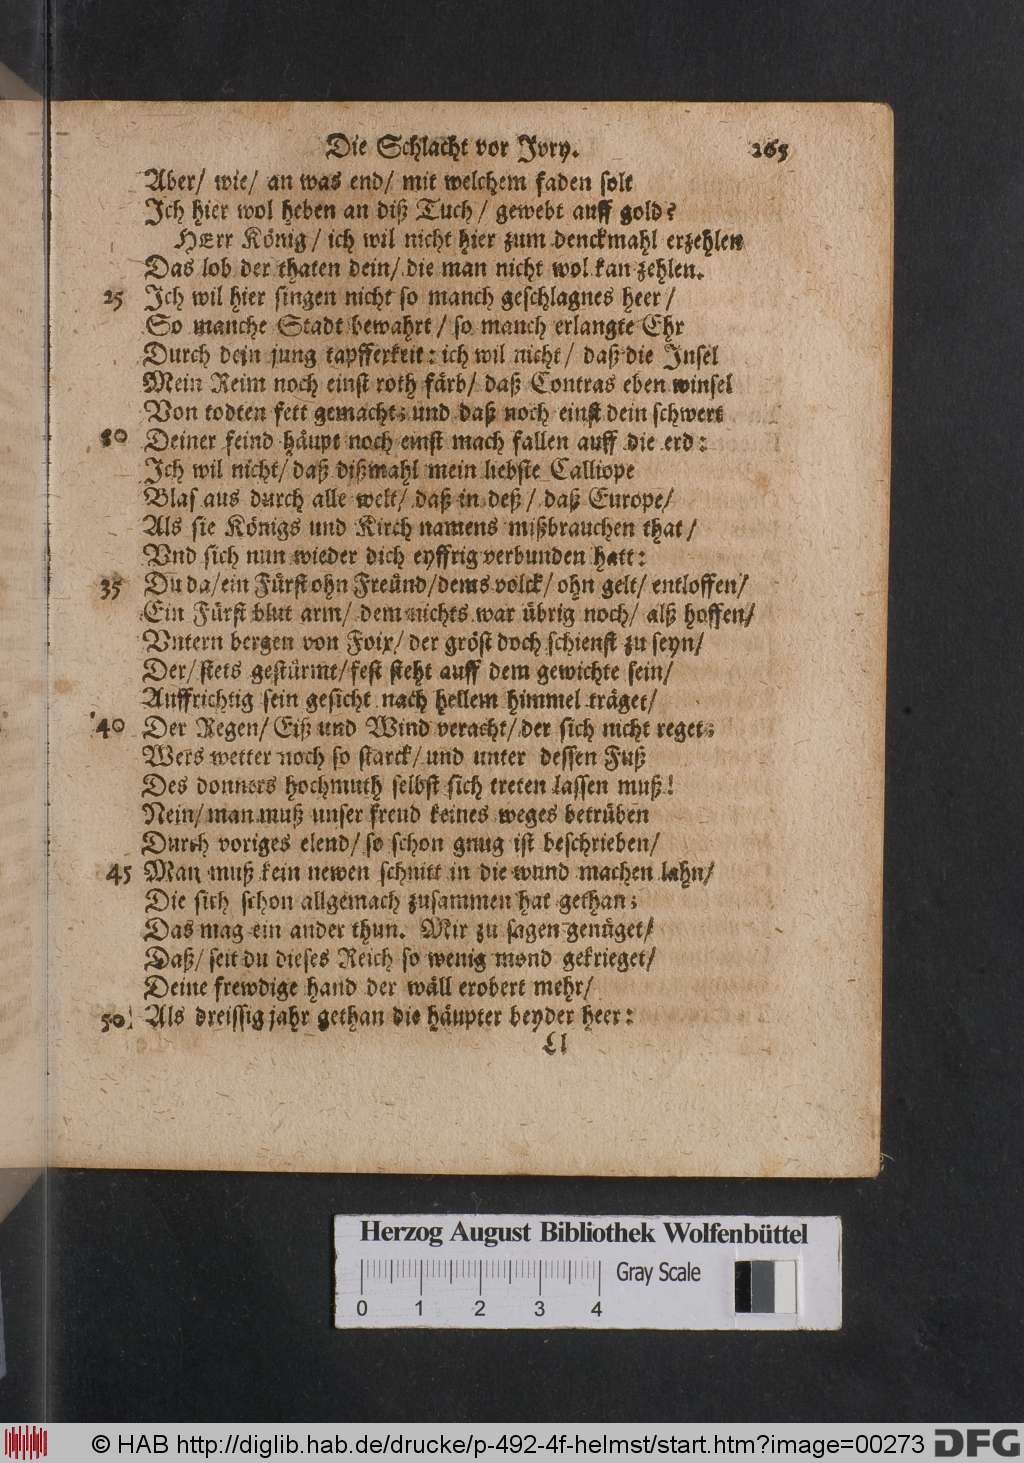 Die Schlacht vor Jvry. 265
Aber/ wie/ an was end/ mit welchem faden solt
Jch hier wol heben an diß Tuch/ gewebt auff gold?
HErr König/ ich wil nicht hier zum denckmahl erzehlen
Das lob der thaten dein/ die man nicht wol kan zehlen.
25 Jch wil hier singen nicht so manch geschlagnes heer/
So manche Stadt bewahrt/ so manch erlangte Ehr
Durch dein jung tapfferkeit: ich wil nicht/ daß die Jnsel
Mein Reim noch einst roth färb/ daß Contras eben winsel
Von todten fett gemacht; und daß noch einst dein schwert
80 Deiner feind häupt noch einst mach fallen auff die erd:
Jch wil nicht/ daß dißmahl mein liebste Calliope
Blas aus durch alle welt/ daß in deß/ daß Europe/
Als sie Königs und Kirch namens mißbrauchen that/
Vnd sich nun wieder dich eyffrig verbunden hatt:
35 Du da/ ein Fürst ohn Freünd/ dems volck/ ohn gelt/ entloffen/
Ein Fürst blut arm/ dem nichts war übrig noch/ alß hoffen/
Vntern bergen von Foix/ der gröst doch schienst zu seyn/
Der/ stets gestürmt/ fest steht auff dem gewichte sein/
Auffrichtig sein gesicht nach hellem himmel träget/
40 Der Regen/ Eiß und Wind veracht/ der sich nicht reget;
Wers wetter noch so starck/ und unter dessen Fuß
Des donners hochmuth selbst sich treten lassen muß!
Nein/ man muß unser freud keines weges betrüben
Durch voriges elend/ so schon gnug ist beschrieben/
45 Man muß kein newen schnitt in die wund machen lahn/
Die sich schon allgemach zusammen hat gethan;
Das mag ein ander thun. Mir zu sagen genüget/
Daß/ seit du dieses Reich so wenig mond gekrieget/
Deine frewdige hand der wäll erobert mehr/
50 Als dreissig jahr gethan die häupter beyder heer:
Ll
Herzog August Bibliothek Wolfenbüttel
Gray Scale
0 1 2 3 4
© HAB http://diglib.hab.de/drucke/p-492-4f-helmst/start.htm?image=00273 DFG